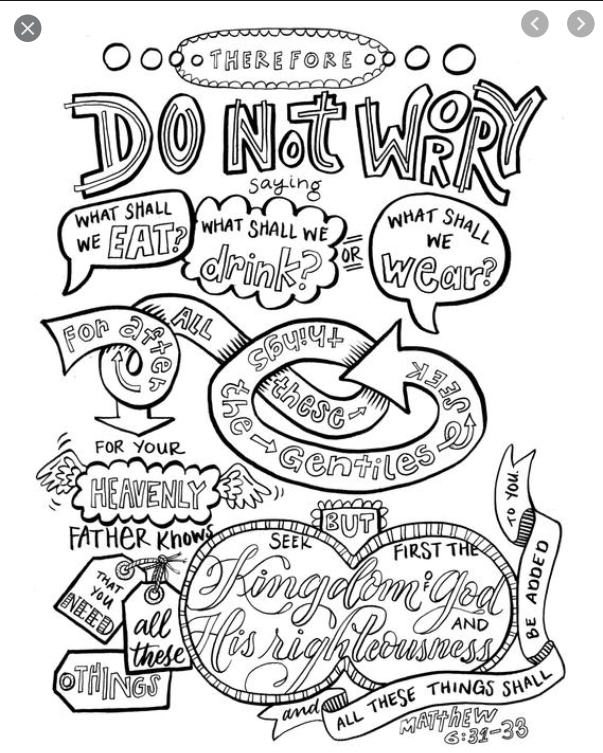 THEREFORE
DO NOT WORRY
saying
WHAT SHALL
WE EAT?
WHAT SHALL WE
drink?
OR
WHAT SHALL
WE
wear?
For after
ALL
these
things
the Gentiles
SEEK
FOR YOUR
HEAVENLY
FATHER Knows
THAT
YOU
NEED
all
these
THINGS
BUT
SEEK FIRST THE
Kingdom of God
AND
His righteousness
and
ALL THESE THINGS SHALL
BE ADDED
TO YOU.
MATTHEW
6:31-33